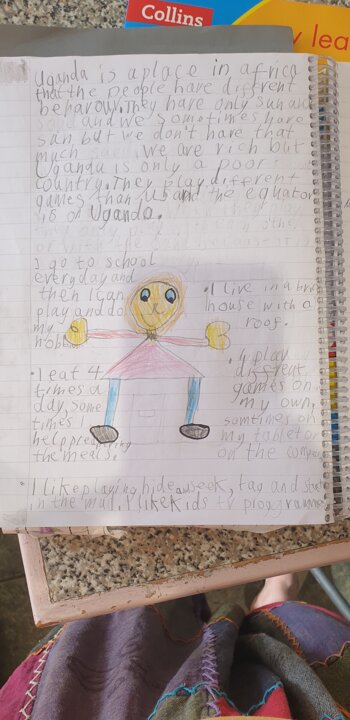 Collins
y lea
Uganda is a place in africa
that the people have diffrent
behaviour. They have only sun and
and we sometimes have
sun but we don't have that
much we are rich but
Uganda is only a poor
country. They play different
games than us and the equator
is on Uganda.
I go to school
everyday and
then I can
play and do
my
hobbi
• I live in a
house with a
roof.
• I eat 4
times a
day, some
times I
help preparing
the meals.
• I play
different
games on
my own,
sumtimes on
my tablet or
on the
• I like playing hide and seek, tag and
in the mud. I like kids tv programme